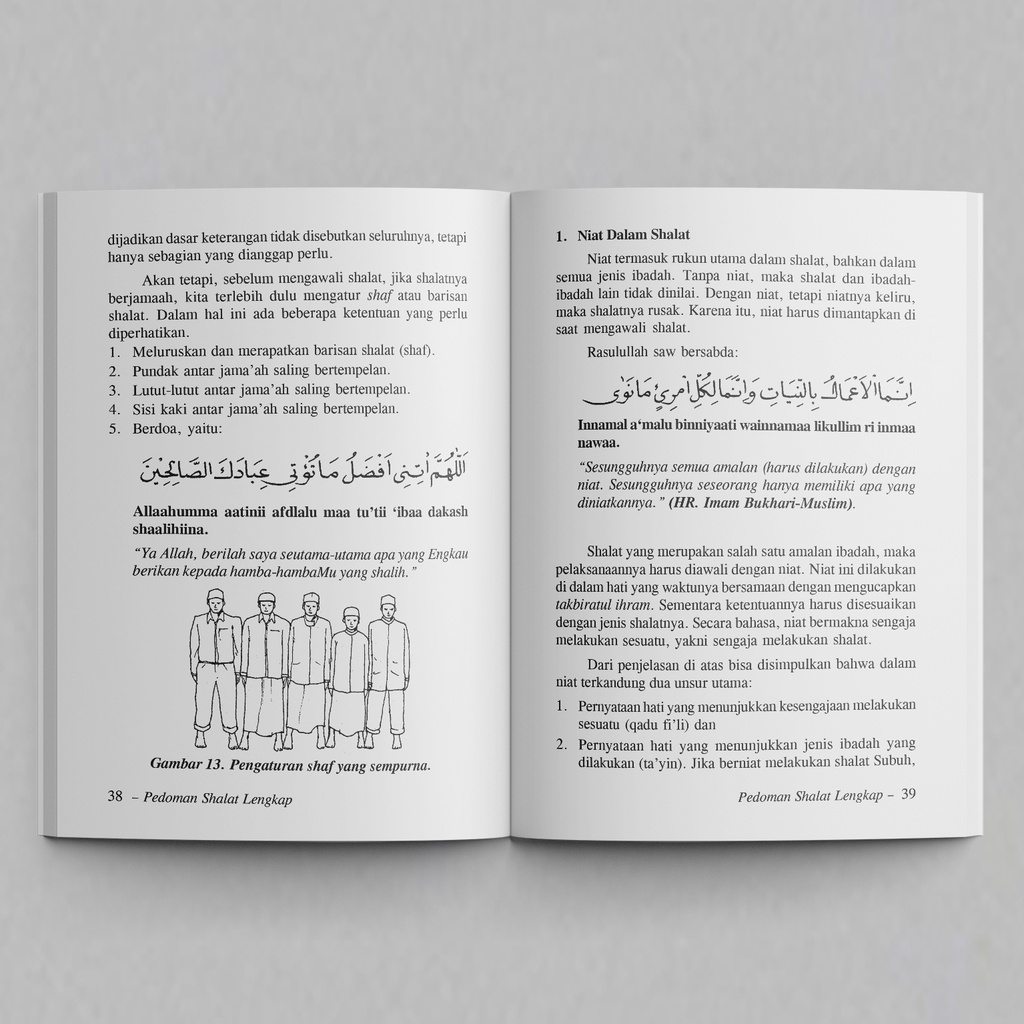 dijadikan dasar keterangan tidak disebutkan seluruhnya, tetapi
hanya sebagian yang dianggap perlu.
Akan tetapi, sebelum mengawali shalat, jika shalatnya
berjamaah, kita terlebih dulu mengatur shaf atau barisan
shalat. Dalam hal ini ada beberapa ketentuan yang perlu
diperhatikan.
1. Meluruskan dan merapatkan barisan shalat (shaf).
2. Pundak antar jama'ah saling bertempelan.
3. Lutut-lutut antar jama'ah saling bertempelan.
4. Sisi kaki antar jama'ah saling bertempelan.
5. Berdoa, yaitu:
اَللّٰهُمَّ اٰتِنِى اَفْضَلُ مَا تُؤْتِى عِبَادَكَ الصَّالِحِيْنَ
Allaahumma aatinii afdlalu maa tu'tii 'ibaa dakash
shaalihiina.
"Ya Allah, berilah saya seutama-utama apa yang Engkau
berikan kepada hamba-hambaMu yang shalih."
Gambar 13. Pengaturan shaf yang sempurna.
38 – Pedoman Shalat Lengkap
1. Niat Dalam Shalat
Niat termasuk rukun utama dalam shalat, bahkan dalam
semua jenis ibadah. Tanpa niat, maka shalat dan ibadah-
ibadah lain tidak dinilai. Dengan niat, tetapi niatnya keliru,
maka shalatnya rusak. Karena itu, niat harus dimantapkan di
saat mengawali shalat.
Rasulullah saw bersabda:
اِنَّمَا الْاَعْمَالُ بِالنِّيَاتِ وَاِنَّمَا لِكُلِّ امْرِئٍ مَا نَوٰى
Innamal a'malu binniyaati wainnamaa likullim ri inmaa
nawaa.
"Sesungguhnya semua amalan (harus dilakukan) dengan
niat. Sesungguhnya seseorang hanya memiliki apa yang
diniatkannya." (HR. Imam Bukhari-Muslim).
Shalat yang merupakan salah satu amalan ibadah, maka
pelaksanaannya harus diawali dengan niat. Niat ini dilakukan
di dalam hati yang waktunya bersamaan dengan mengucapkan
takbiratul ihram. Sementara ketentuannya harus disesuaikan
dengan jenis shalatnya. Secara bahasa, niat bermakna sengaja
melakukan sesuatu, yakni sengaja melakukan shalat.
Dari penjelasan di atas bisa disimpulkan bahwa dalam
niat terkandung dua unsur utama:
1. Pernyataan hati yang menunjukkan kesengajaan melakukan
sesuatu (qadu fi'li) dan
2. Pernyataan hati yang menunjukkan jenis ibadah yang
dilakukan (ta'yin). Jika berniat melakukan shalat Subuh,
Pedoman Shalat Lengkap – 39